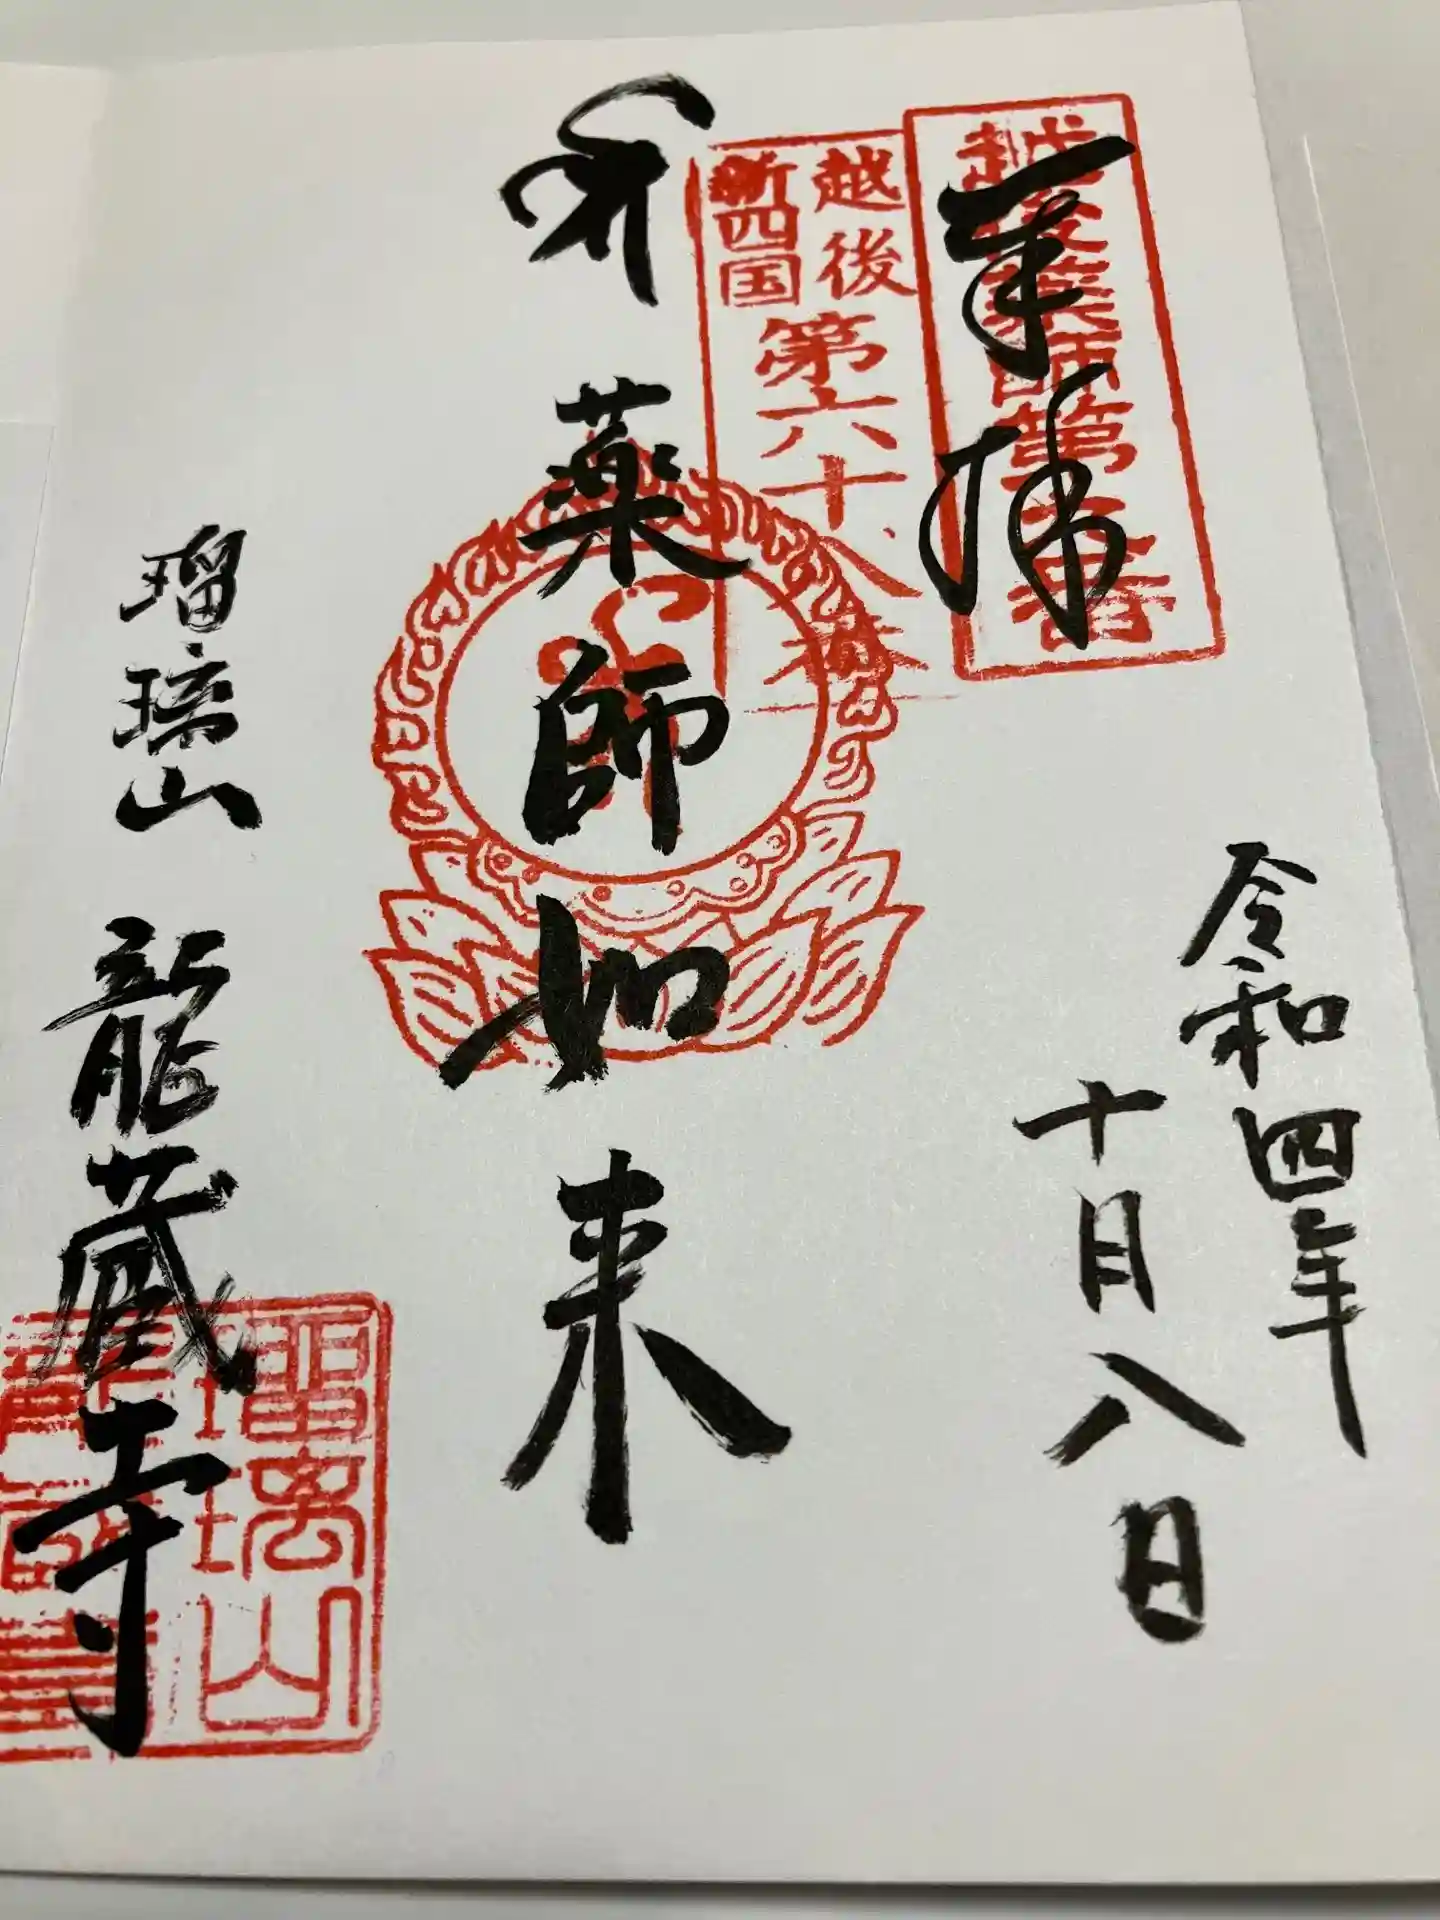 奉拝
越後薬師第 番
令和四年
十月八日
越後
新四国
第六十八番
薬師如来
瑠璃山
龍蔵寺
瑠璃山
龍蔵寺